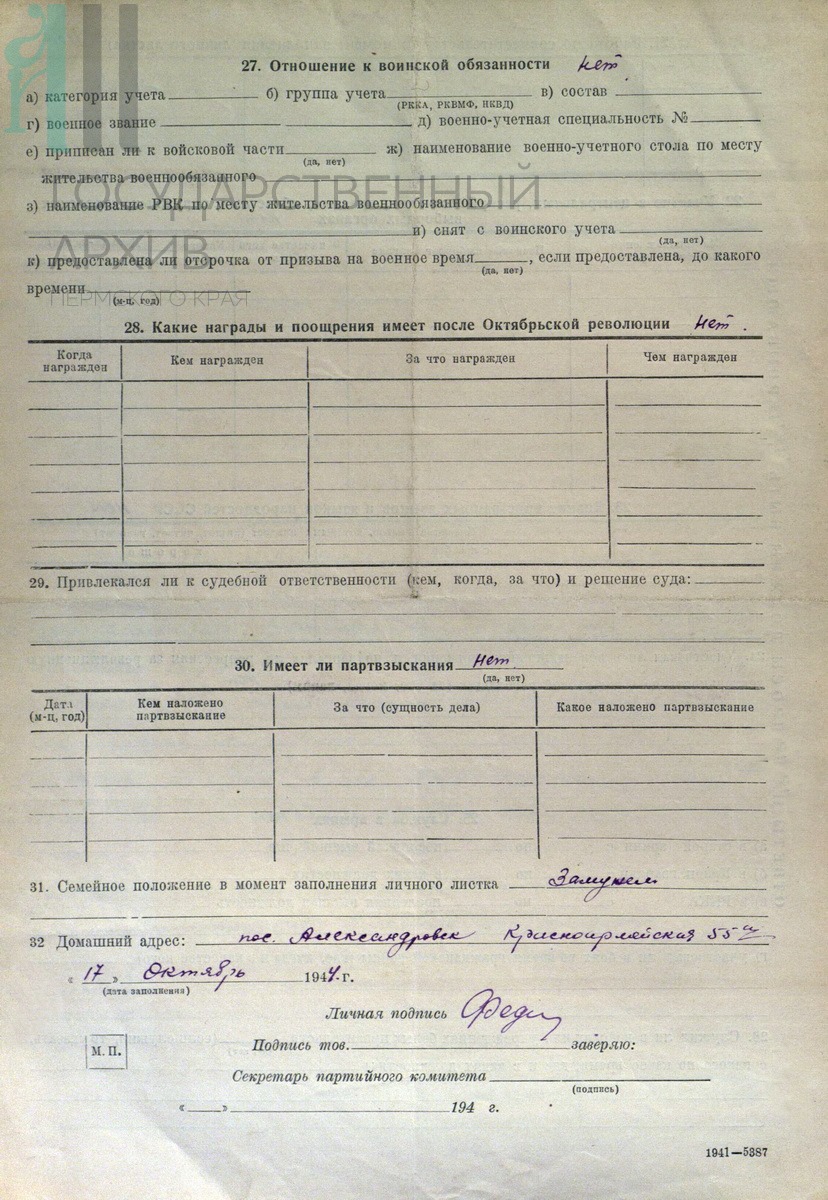 27. Отношение к воинской обязанности нет
а) категория учета б) группа учета в) состав
(РККА, РКВМФ, НКВД)
г) военное звание д) военно-учетная специальность №
е) приписан ли к войсковой части ж) наименование военно-учетного стола по месту
(да, нет)
жительства военнообязанного
ГОСУДАРСТВЕННЫЙ
з) наименование РВК по месту жительства военнообязанного
и) снят с воинского учета
(да, нет)
АРХИВ
к) предоставлена ли отсрочка от призыва на военное время, если предоставлена, до какого
(да, нет)
времени
(м-ц, год)
ПЕРМСКОГО КРАЯ
28. Какие награды и поощрения имеет после Октябрьской революции Нет.
Когда награжден Кем награжден За что награжден Чем награжден
29. Привлекался ли к судебной ответственности (кем, когда, за что) и решение суда:
30. Имеет ли партвзыскания Нет
(да, нет)
Дата (м-ц, год) Кем наложено партвзыскание За что (сущность дела) Какое наложено партвзыскание
31. Семейное положение в момент заполнения личного листка Замужем
32 Домашний адрес: пос. Александровск Красноармейская 55
« 17 » Октябрь 1944 г.
(дата заполнения)
Личная подпись
М.П.
Подпись тов. заверяю:
Секретарь партийного комитета
(подпись)
« » 194 г.
1941—5387